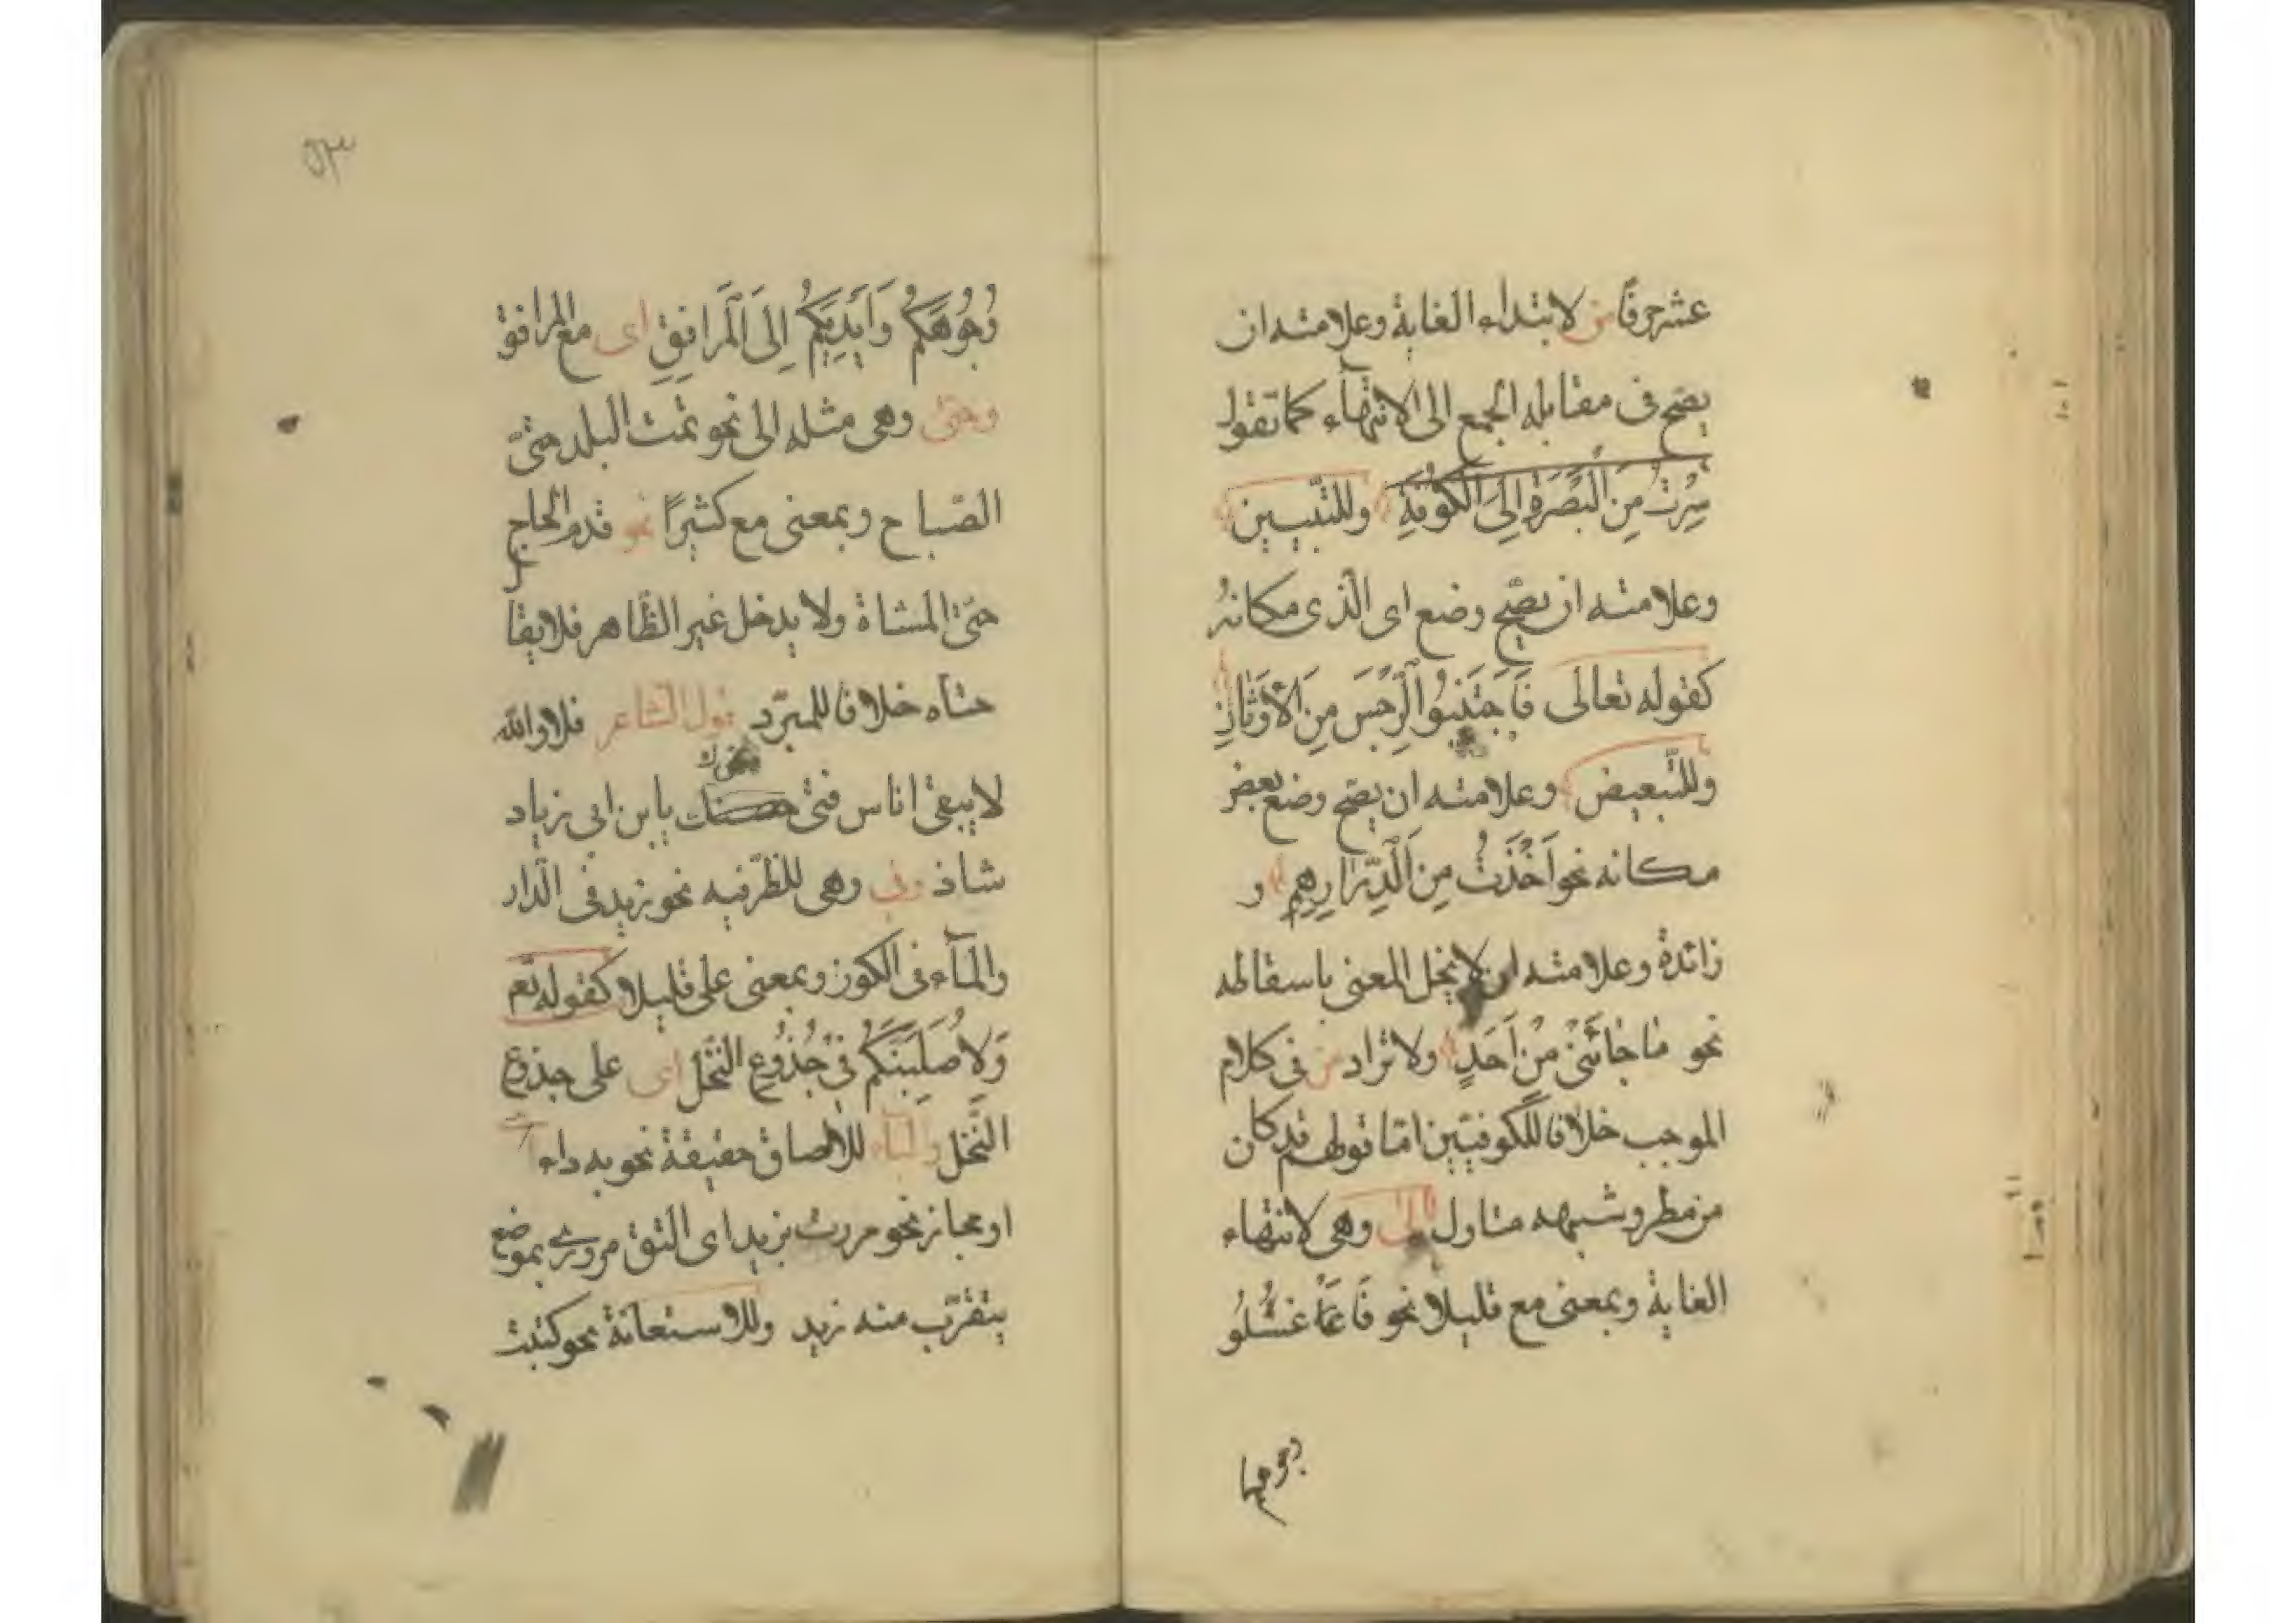 عشر حرفًا من لابتداء الغاية وعلامته ان
يصح فى مقابله الجمع الى الانتهاء كما تقول
سِرْتُ مِنَ الْبَصْرَةِ اِلَى الْكُوفَةِ وللتّبيين
وعلامته ان يصّح وضع اى الّذى مكانهُ
كقوله تعالى فَاجْتَنِبُوا الرِّجْسَ مِنَ الْاَوْثَانِ
وللتّبعيض وعلامته ان يصّح وضع بعض
مكانه نحو اَخَذْتُ مِنَ الدَّرَاهِمِ و
زائدة وعلامته ان لا يخل المعنى باسقاطه
نحو مٰا جٰائَنىْ مِنْ اَحَدٍ ولا تزاد من فى كلام
الموجب خلافا للكوفيّين امّا قولهم قد كان
من مطر وشبهه متاول الى وهى لانتهاء
الغاية وبمعنى مع قليلا نحو فَاغسلُو
وجوهكم
٥٣
وُجُوُهَكُمْ وَاَيْدِيَكُمْ اِلَى الْمَرافِقِ اى مع المرافق
وحتى وهى مثل الى نحو نمت البلد حتىّ
الصّباح وبمعنى مع كثيرًا نحو قدم الحاج
حتّى المشاة ولا يدخل غير الظّاهر فلا يقا
حتاه خلافا للمبرّد قول الشاعر فلا والله
لا يبقى اناس فتى حتاك يابن ابى زياد
شاذ وفى وهى للظّرفيه نحو زيد فى الدّار
والمآء فى الكوز وبمعنى على قليلا كقوله تعم
وَلَاُصَلِّبَنَّكُمْ فىْ جُذُوُعِ النّخْلِ اى على جذوع
النّخل والباء للالصاق حقيقة نحو به داء
او مجاز نحو مررت بزيد اى التق مرورى بموضع
يتقرّب منه زيد وللاستعانة نحو كتبت